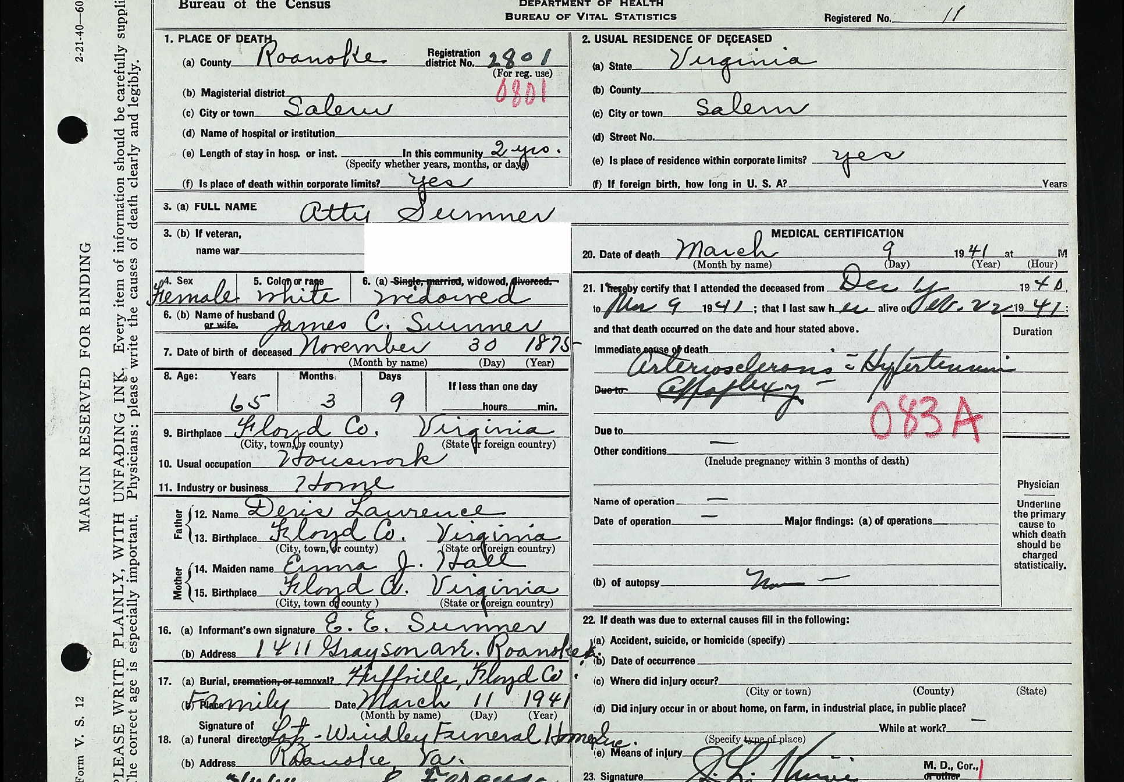 Bureau of the Census
DEPARTMENT OF HEALTH
BUREAU OF VITAL STATISTICS
Registered No. 11
2-21-40-60
MARGIN RESERVED FOR BINDING
Form V. S. 12
PLEASE WRITE PLAINLY, WITH UNFADING INK. Every item of information should be carefully suppli
The correct age is especially important. Physicians: please write the causes of death clearly and legibly.
1. PLACE OF DEATH
(a) County Roanoke Registration district No. 2801
(For reg. use)
(b) Magisterial district 0801
(c) City or town Salem
(d) Name of hospital or institution
(e) Length of stay in hosp. or inst. In this community 2 yrs.
(Specify whether years, months, or days)
(f) Is place of death within corporate limits? yes
2. USUAL RESIDENCE OF DECEASED
(a) State Virginia
(b) County
(c) City or town Salem
(d) Street No.
(e) Is place of residence within corporate limits? yes
(f) If foreign birth, how long in U. S. A? Years
3. (a) FULL NAME Atty Sumner
3. (b) If veteran,
name war
4. Sex 5. Color or race 6. (a) Single, married, widowed, divorced.
Female White widowed
6. (b) Name of husband or wife. James C. Sumner
7. Date of birth of deceased November 30 1875
(Month by name) (Day) (Year)
8. Age: Years Months Days If less than one day
65 3 9 hours min.
9. Birthplace Floyd Co. Virginia
(City, town, or county) (State or foreign country)
10. Usual occupation Housework
11. Industry or business Home
Father
12. Name Denis Laurence
13. Birthplace Floyd Co. Virginia
(City, town, or county) (State or foreign country)
Mother
14. Maiden name Emma J. Hall
15. Birthplace Floyd Co. Virginia
(City, town or county) (State or foreign country)
16. (a) Informant's own signature E. E. Sumner
(b) Address 1411 Grayson ave. Roanoke
17. (a) Burial, cremation, or removal? Huffville, Floyd Co.
(b) Place Family Date March 11 1941
(Month by name) (Day) (Year)
Signature of
18. (a) funeral director Windley Funeral Home Inc.
(b) Address Roanoke, Va.
MEDICAL CERTIFICATION
20. Date of death March 9 1941 at M
(Month by name) (Day) (Year) (Hour)
21. I hereby certify that I attended the deceased from Dec 1940,
to Mar 9 1941; that I last saw her alive on Feb. 22 1941;
and that death occurred on the date and hour stated above.
Duration
Immediate cause of death
Arteriosclerosis - Hypertension
Due to Appoplexy -
083A
Due to
Other conditions —
(Include pregnancy within 3 months of death)
Name of operation —
Date of operation — Major findings: (a) of operations
(b) of autopsy No —
Physician
Underline
the primary
cause to
which death
should be
charged
statistically.
22. If death was due to external causes fill in the following:
(a) Accident, suicide, or homicide (specify)
(b) Date of occurrence
(c) Where did injury occur?
(City or town) (County) (State)
(d) Did injury occur in or about home, on farm, in industrial place, in public place?
— While at work?
(Specify type of place)
(e) Means of injury
23. Signature M. D., Cor., or other